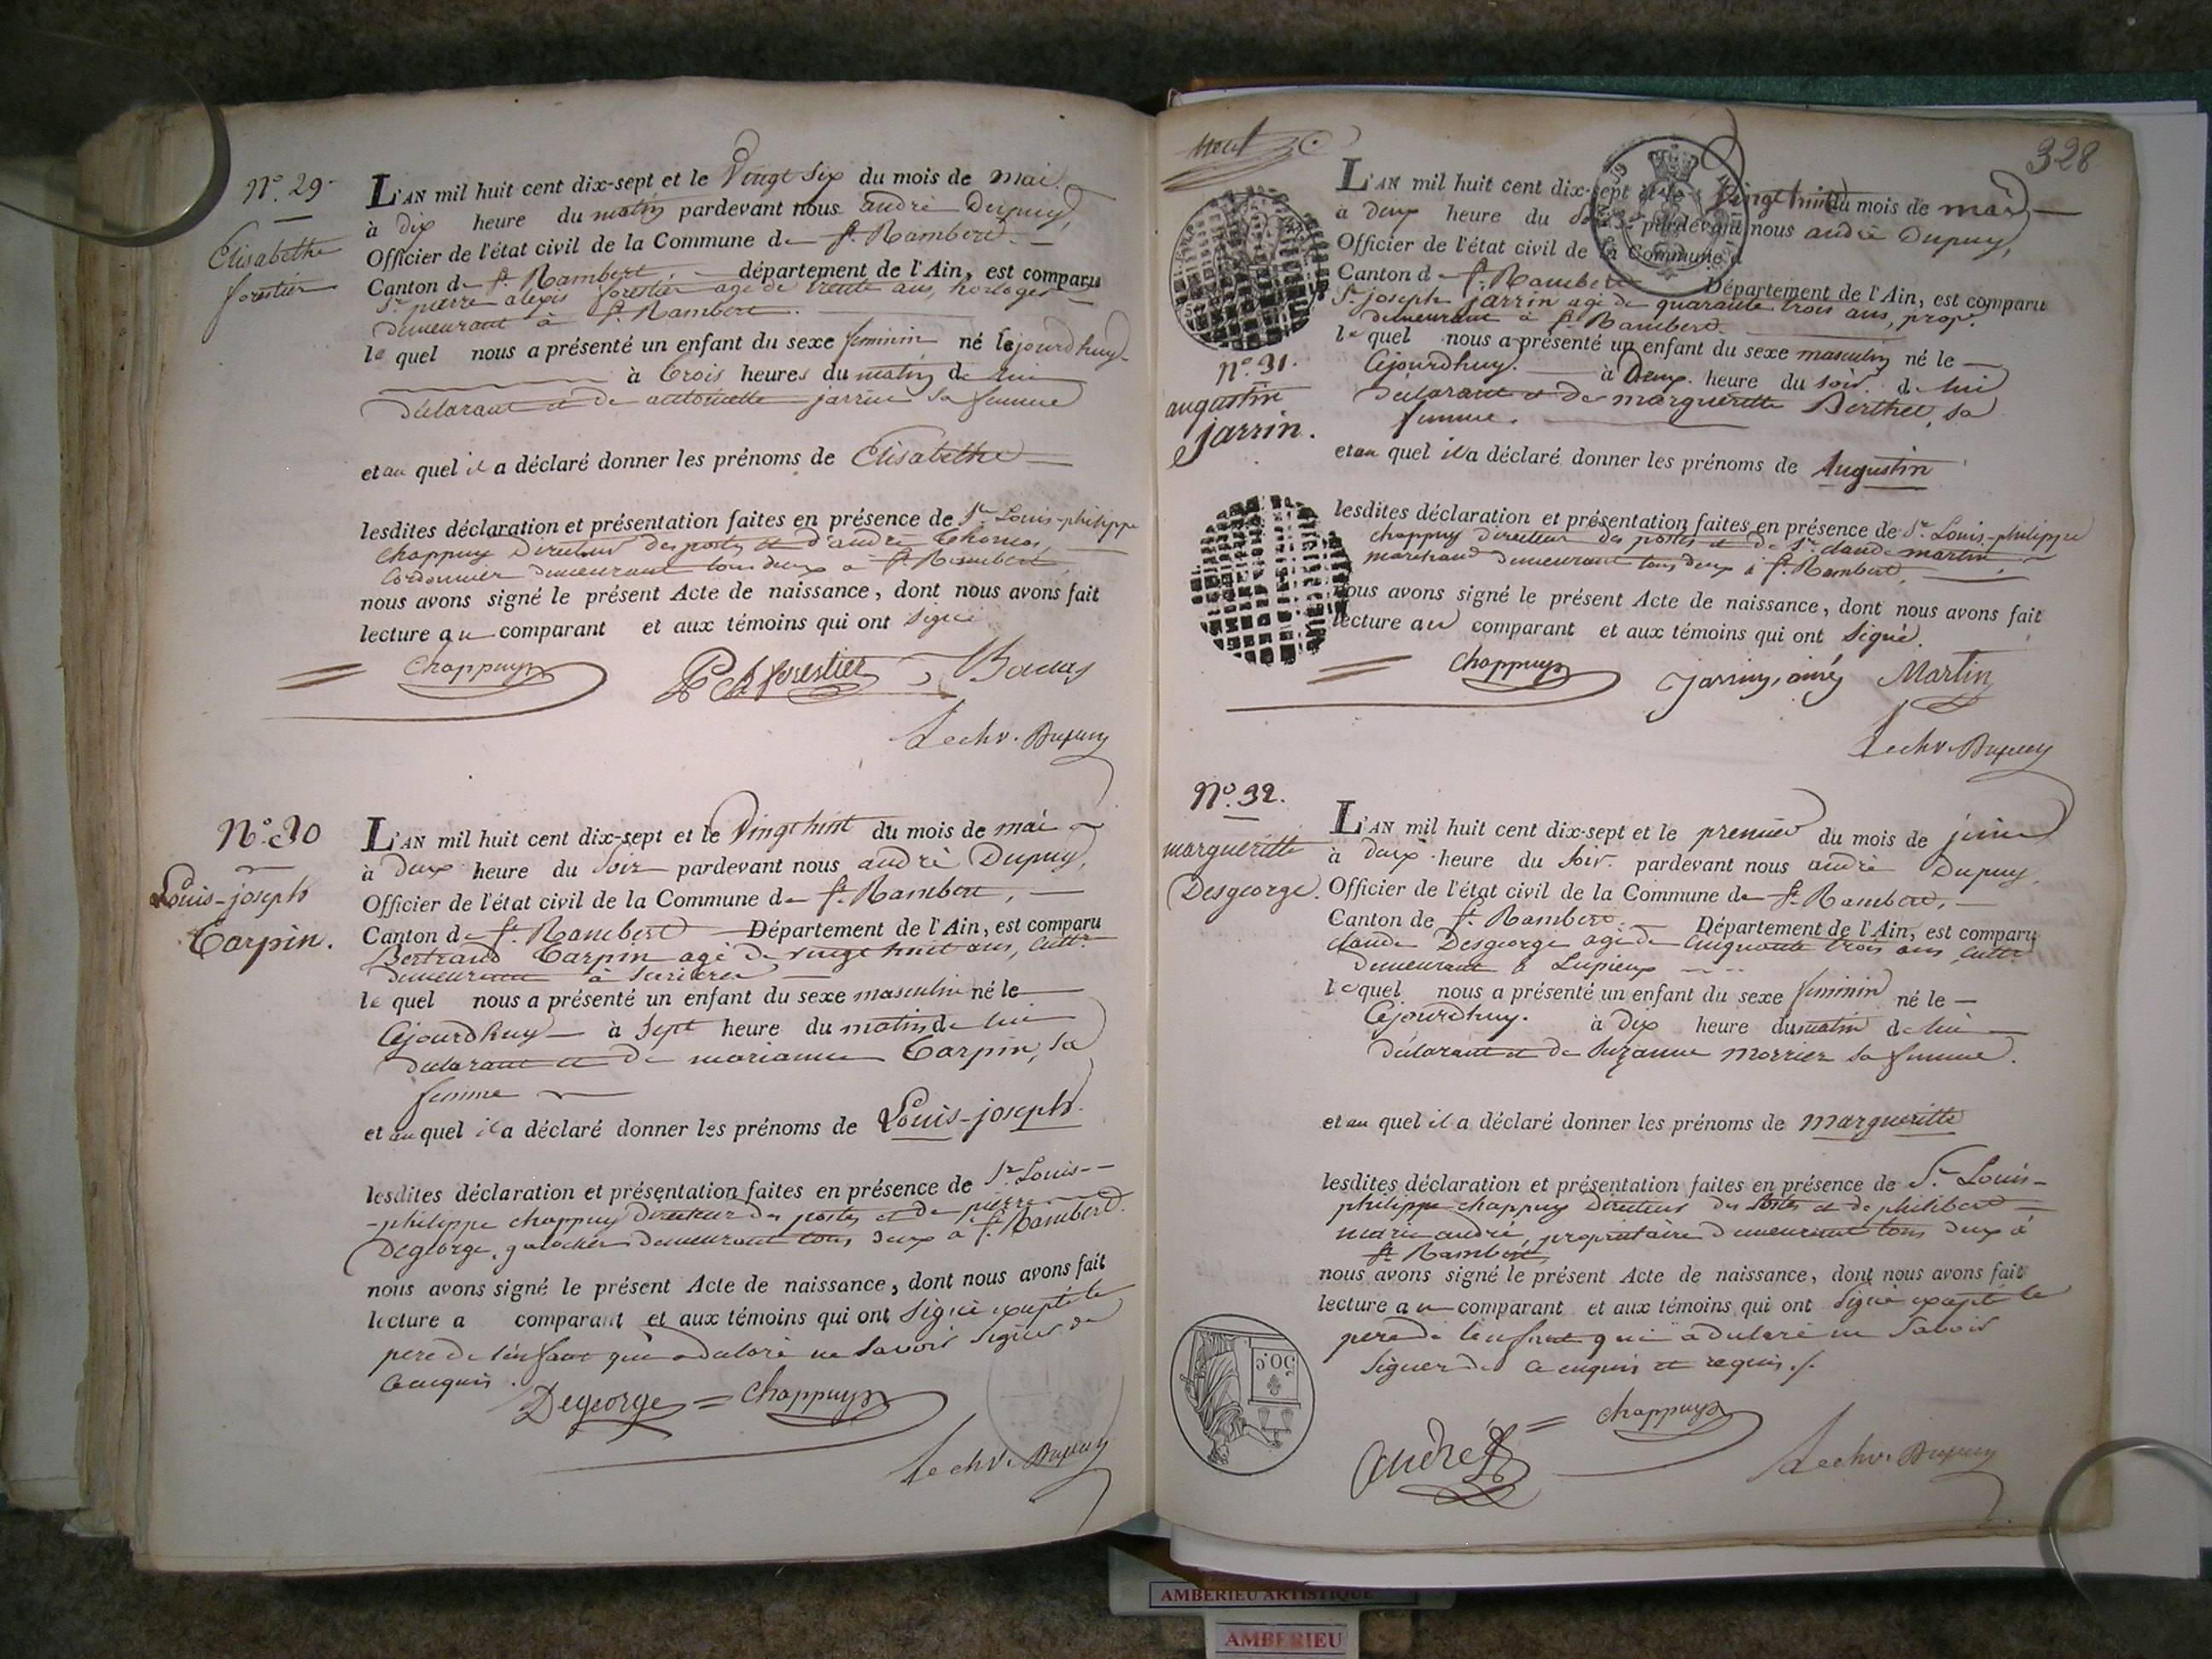 N.o 29.
Elisabethe
forestier
L'AN mil huit cent dix-sept et le Vingt Six du mois de mai
à dix heure du matin pardevant nous andré Dupuy,
Officier de l'état civil de la Commune de St. Rambert.
Canton de St. Rambert. département de l'Ain, est comparu
Sr. pierre alexis forestier agé de trente ans, horloger
demeurant à St. Rambert.
lequel nous a présenté un enfant du sexe feminin né le jourdhuy
à trois heures du matin de lui
déclarant et de antoinette jarrin sa femme
et au quel il a déclaré donner les prénoms de Elisabethe
lesdites déclaration et présentation faites en présence de Sr. Louis-philippe
chappuy Directeur des postes et d'andré
Cordonnier demeurant tous deux à St. Rambert
nous avons signé le présent Acte de naissance, dont nous avons fait
lecture au comparant et aux témoins qui ont signé
Chappuys P A forestier
Le chv. Dupuy
N.o 30
Louis-joseph
Carpin.
L'AN mil huit cent dix-sept et le Vingt huit du mois de mai
à deux heure du Soir pardevant nous andré Dupuy,
Officier de l'état civil de la Commune de St. Rambert,
Canton de St. Rambert Département de l'Ain, est comparu
Bertrand Carpin agé de vingt huit ans, cultr
demeurant à
lequel nous a présenté un enfant du sexe masculin né le
Cejourdhuy à Sept heure du matin de lui
déclarant et de marianne Carpin, sa
femme
et au quel il a déclaré donner les prénoms de Louis-joseph.
lesdites déclaration et présentation faites en présence de Sr. Louis-
-philippe chappuy directeur des postes et de pierre
Degeorge, galochier demeurant tous deux à St. Rambert.
nous avons signé le présent Acte de naissance, dont nous avons fait
lecture a comparant et aux témoins qui ont Signé excepté le
pere de l'enfant qui a declaré ne Savoir Signer de
ce enquis.
Degeorge = Chappuys
Le chv. Dupuy
328
N.o 31.
augustin
jarrin.
L'AN mil huit cent dix-sept et le Vingt huit du mois de mai
à deux heure du Soir pardevant nous andré Dupuy,
Officier de l'état civil de la Commune d
Canton de St. Rambert Département de l'Ain, est comparu
Sr. joseph jarrin agé de quarante trois ans, propre.
demeurant à St. Rambert.
lequel nous a présenté un enfant du sexe masculin né le
Cejourdhuy. à Deux heure du soir de lui
déclarant et de margueritte Berthet, sa
femme.
et au quel il a déclaré donner les prénoms de Augustin
lesdites déclaration et présentation faites en présence de Sr. Louis-philippe
chappuy directeur des postes et de Sr. claude martin,
marchand demeurant tous deux à St. Rambert,
nous avons signé le présent Acte de naissance, dont nous avons fait
lecture au comparant et aux témoins qui ont Signé.
Chappuys Jarrin, ainé Martin
Le chv. Dupuy
N.o 32.
margueritte
Desgeorge.
L'AN mil huit cent dix-sept et le premier du mois de juin
à deux heure du Soir. pardevant nous andré Dupuy,
Officier de l'état civil de la Commune de St. Rambert,
Canton de St. Rambert. Département de l'Ain, est comparu
claude Desgeorge agé de cinquante trois ans, cultr
demeurant à Lupieux
lequel nous a présenté un enfant du sexe feminin né le
Cejourdhuy. à dix heure du matin de lui
déclarant et de Suzanne morrier sa femme.
et au quel il a déclaré donner les prénoms de margueritte
lesdites déclaration et présentation faites en présence de Sr. Louis-
philippe chappuy Directeur des Postes et de philibert
marie andré, propriétaire demeurant tous deux à
St. Rambert,
nous avons signé le présent Acte de naissance, dont nous avons fait
lecture au comparant et aux témoins qui ont Signé excepté le
pere de l'enfant qui a declaré ne Savoir
Signer de ce enquis et requis./.
andré = Chappuys
Le chv. Dupuy
50.C
AMBERIEU ARTISTIQUE
AMBERIEU